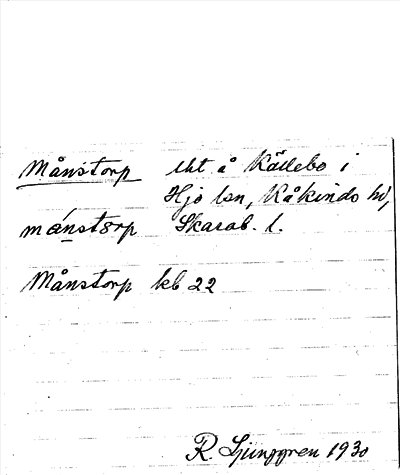 Månstorp lht å Källebo i
Hjo lsn, Kåkinds hd,
månstorp Skarab. l.
Månstorp kb 22
R. Ljunggren 1930